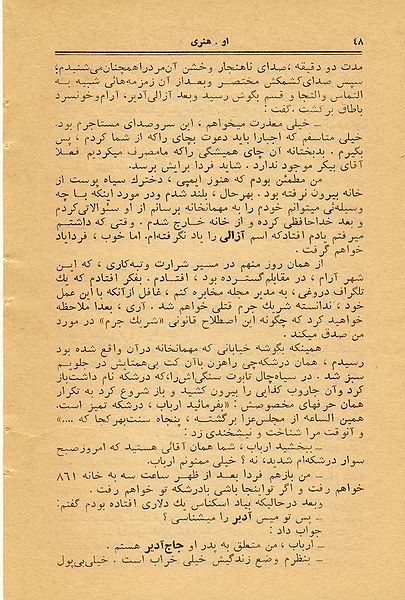 ۴۸
او . هنری
مدت دو دقیقه ، صدای ناهنجار وخشن آن‌مردراهمچنان‌می‌شنیدم؛
سپس صدای‌کشمکش مختصر وبعداز آن زمزمه‌هائی شبیه به
التماس والتجا و قسم بگوش رسید وبعد آزالی‌آدیر، آرام‌وخونسرد
باطاق برگشت . گفت :
ــ خیلی معذرت میخواهم ، این سروصدای مستاجرم بود.
خیلی متاسفم که اجبارا باید دعوت بچای راکه از شما کردم ، پس
بگیرم . بدبختانه آن چای همیشگی راکه مامصرف میکردیم فعلا
آقای بیکر موجود ندارد . شاید فردا برایش برسد.
من مطمئن بودم که هنوز ایمپی ، دخترك سیاه پوست از
خانه بیرون نرفته بود . بهرحال ، بلند شدم ودر مورد اینکه با چه
وسیله‌ئی میتوانم خودم را به مهمانخانه برسانم از او سئوالاتی‌کردم
و بعد خداحافظی کرده و از خانه خارج شدم . وقتی که داشتم
میرفتم یادم افتادکه اسم آزالی را یاد نگرفته‌ام. اما خوب ، فردایاد
خواهم گرفت .
از همان روز منهم در مسیر شرارت وتبه‌کاری ، که این
شهر آرام ، در مقابلم‌گسترده بود ، افتادم . بفکر افتادم که یك
تلگراف دروغی ، به مدیر مجله مخابره کنم ، غافل ازآنکه بااین عمل
خود ، ندانسته شریك جرم قتلی خواهم شد. آری ، بعدا ملاحظه
خواهید کرد که چگونه این اصطلاح قانونی «شریك جرم» در مورد
من صدق میکند .
همینکه بگوشه خیابانی که مهمانخانه درآن واقع شده بود
رسیدم ، همان درشکه‌چی راهزن باآن کت بی‌همتایش در جلویم
سبز شد . در سیاه‌چال تابوت سنگی‌اش‌راکه درشکه نام داشت‌باز
کردوآن جاروب کذایی را بیرون کشید و باز شروع کرد به تکرار
همان حرفهای مخصوصش : «بفرمائید ارباب ، درشکه تمیز است.
همین الساعه از مجلس‌عزا برگشته ، پنجاه سنت‌بهرکجا که ....»
و آنوقت مرا شناخت و نیشخندی زد :
ــ ببخشید ارباب ، شما همان آقائی هستید که امروزصبح
سوار درشکه‌ام شدید، نه ؟ خیلی ممنونم ارباب.
ــ من بازهم فردا بعد از ظهر ساعت سه به خانه ۸۶۱
خواهم رفت و اگر تواینجا باشی بادرشکه تو خواهم رفت .
وبعد درحالیکه بیاد اسکناس یك دلاری افتاده بودم گفتم:
ــ پس تو میس آدیر را میشناسی ؟
جواب داد :
ــ ارباب ، من متعلق به پدر او جاج‌آدیر هستم .
ــ بنظرم وضع زندگیش خیلی خراب است . خیلی‌بی‌پول